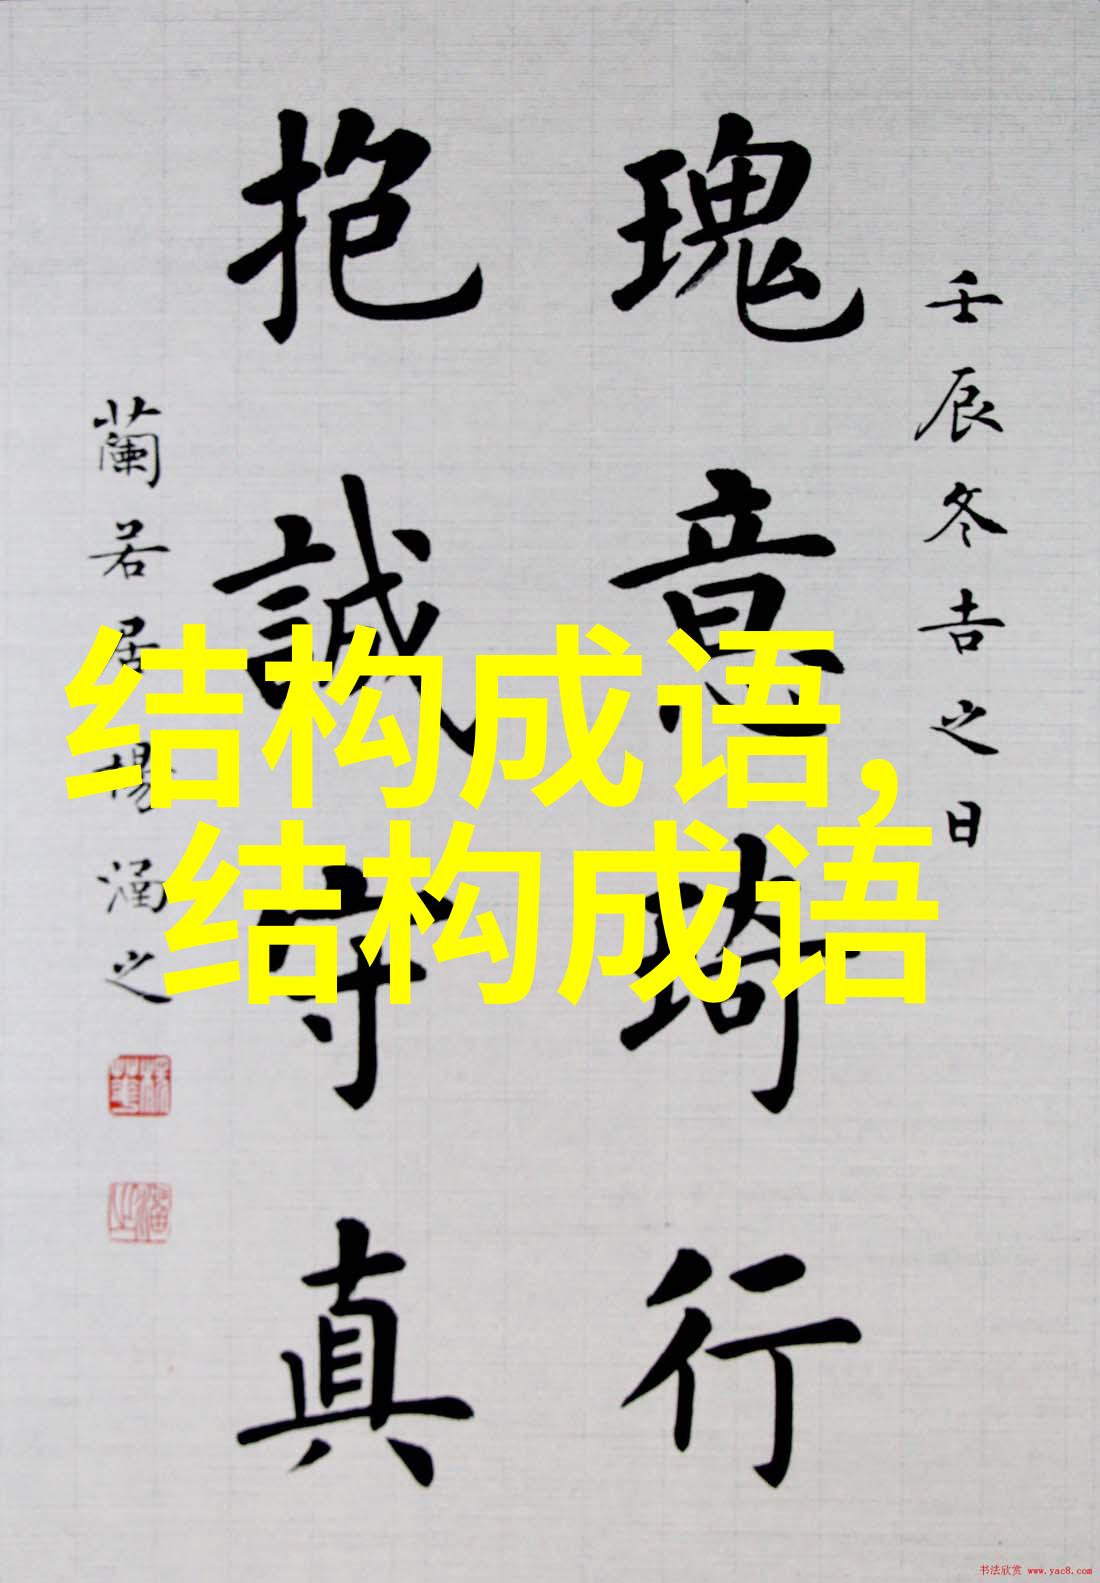 壬辰冬吉之日
瑰意琦行
抱誠守真
蘭若居楊涵之
结构成语,
结构成语
书法欣赏 www.yac8.com